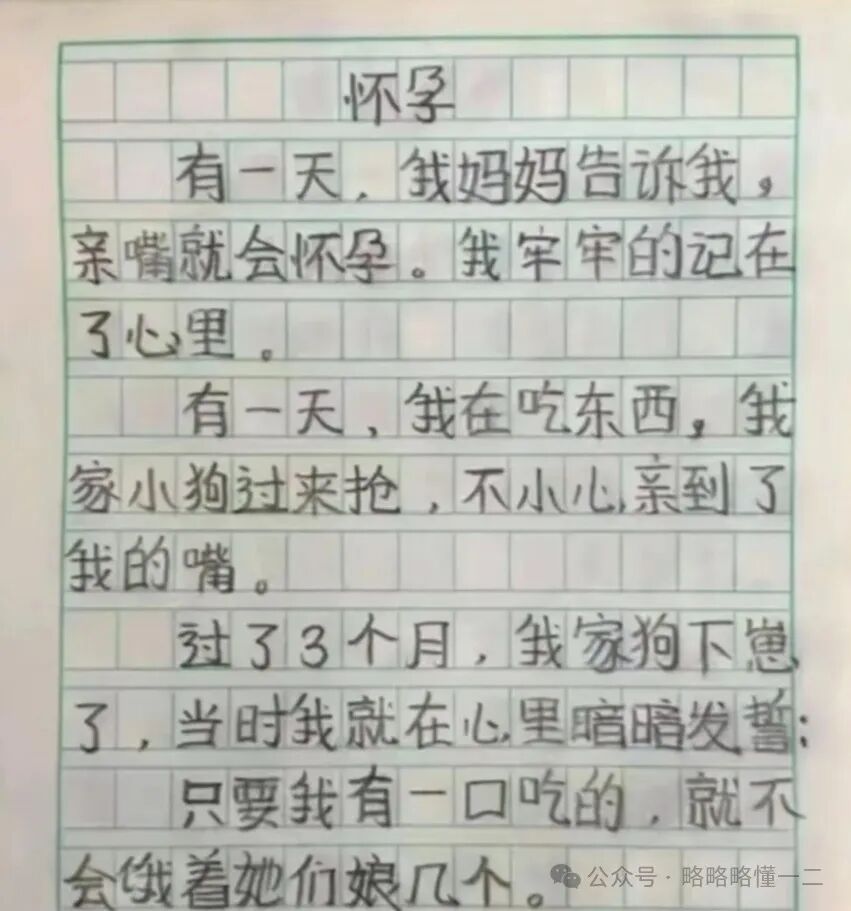 怀孕
有一天，我妈妈告诉我，
亲嘴就会怀孕。我牢牢的记在
了心里。
有一天，我在吃东西，我
家小狗过来抢，不小心亲到了
我的嘴。
过了3个月，我家狗下崽
了，当时我就在心里暗暗发誓：
只要我有一口吃的，就不
会饿着她们娘几个。
公众号·略略略懂一二